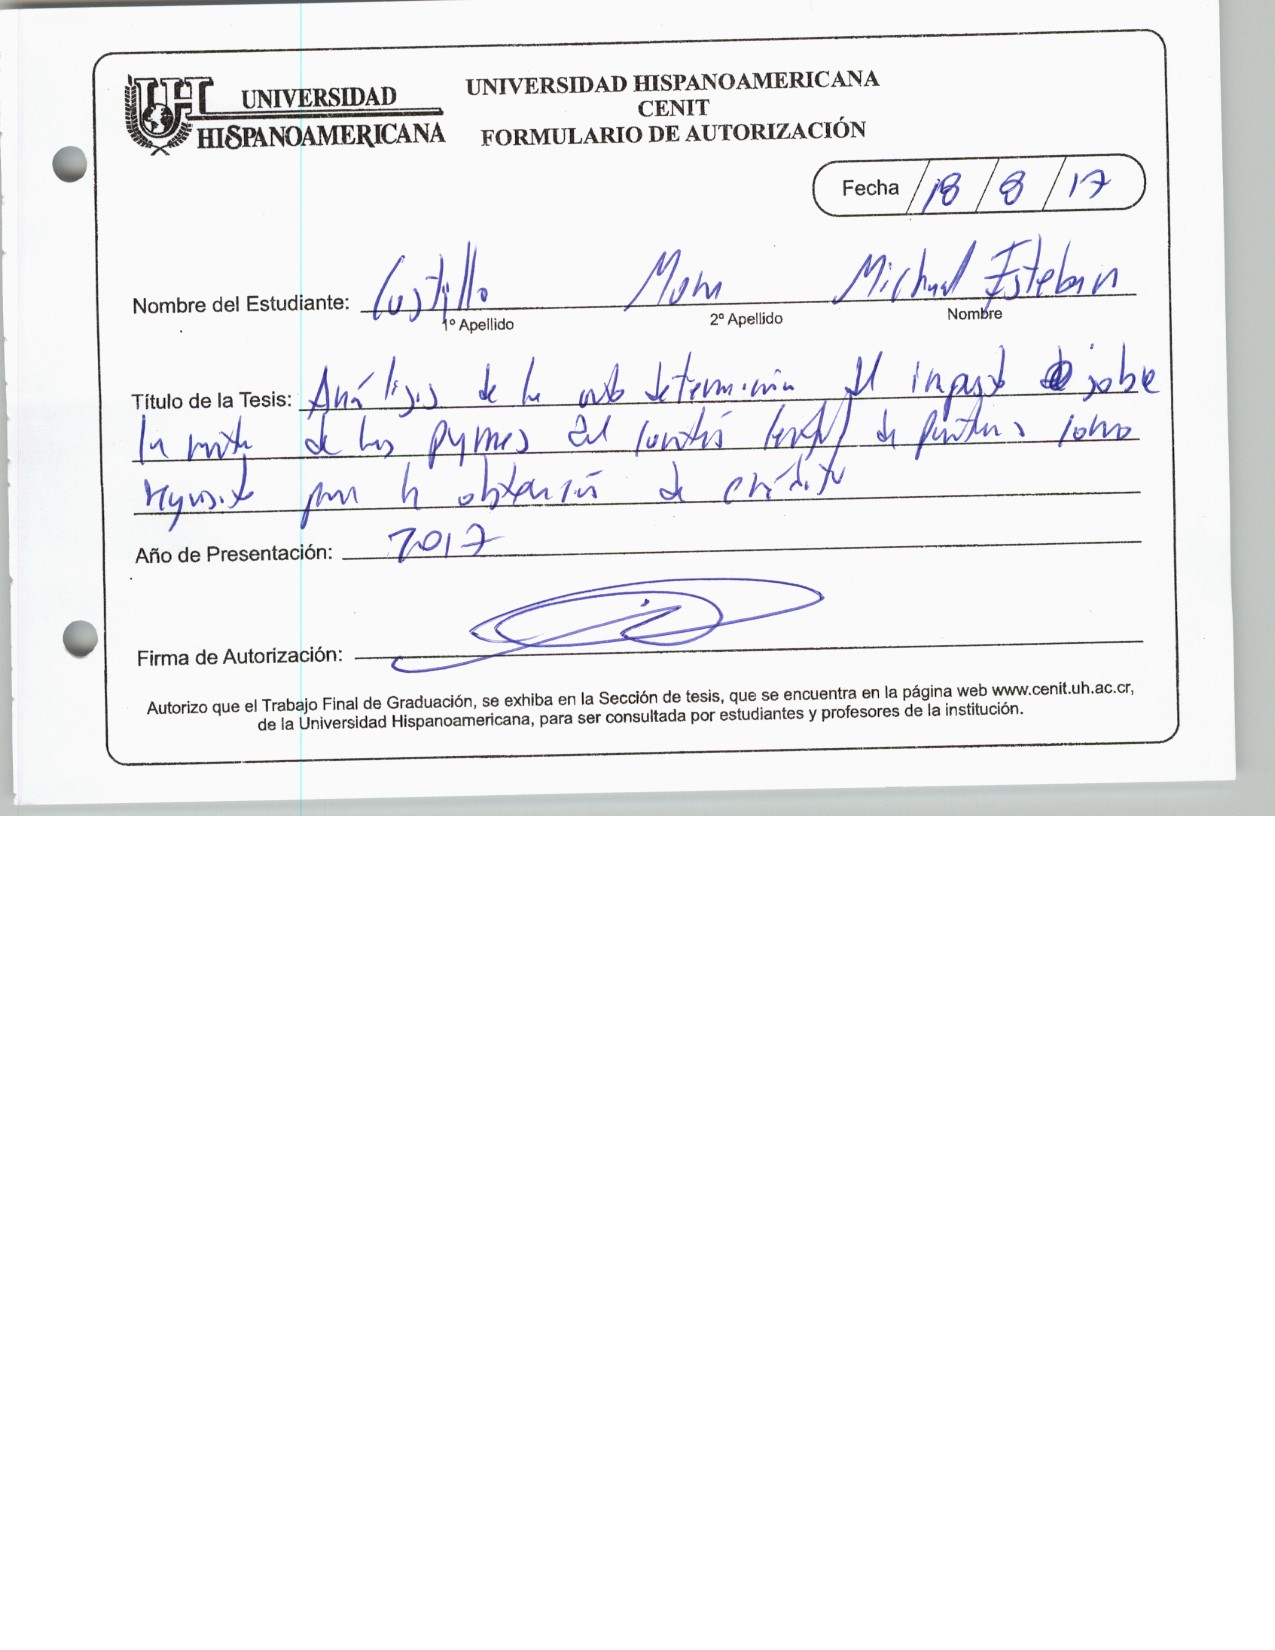 UNIVERSIDAD
HISPANOAMERICANA
UNIVERSIDAD HISPANOAMERICANA
CENIT
FORMULARIO DE AUTORIZACIÓN
Fecha 18 / 8 / 17
Nombre del Estudiante: Castillo Michael Esteban
1º Apellido 2º Apellido Nombre
Título de la Tesis: Análisis de la del sobre
la de las pymes del de como
para la obtención de crédito
Año de Presentación: 2017
Firma de Autorización:
Autorizo que el Trabajo Final de Graduación, se exhiba en la Sección de tesis, que se encuentra en la página web www.cenit.uh.ac.cr,
de la Universidad Hispanoamericana, para ser consultada por estudiantes y profesores de la institución.